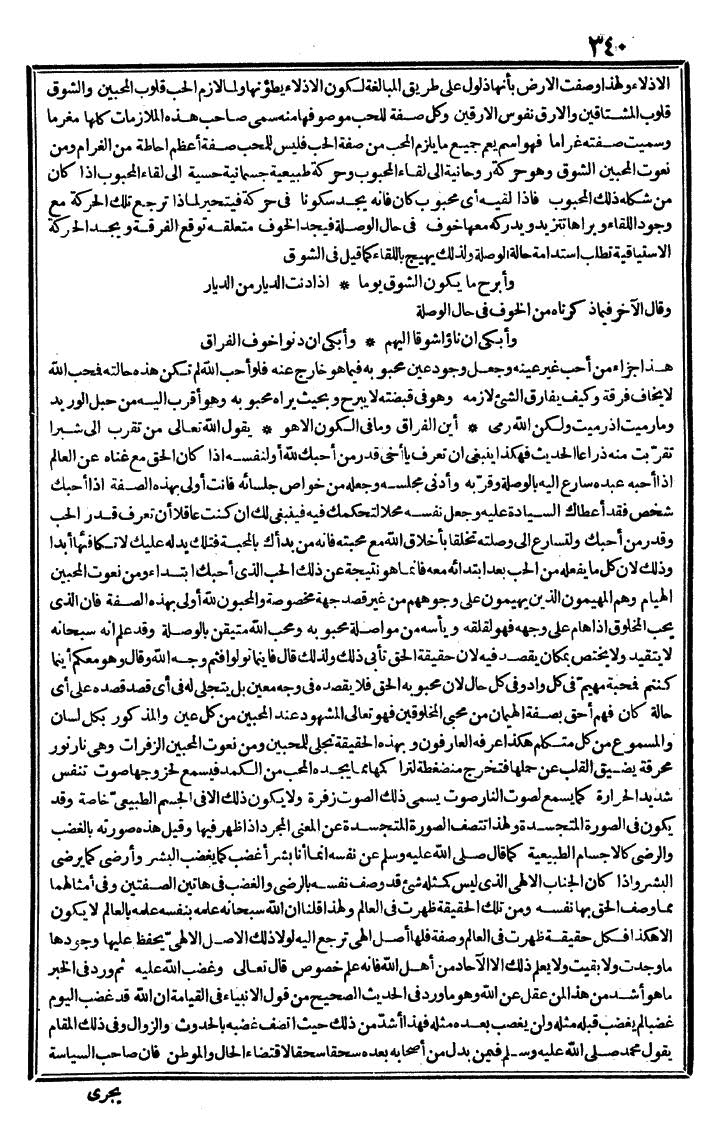 ٣٤٠
الاذلاء ولهذا وصفت الارض بأنها ذلول على طريق المبالغة لكون الاذلاء يطؤنها ولما لازم الحب قلوب المحبين والشوق
قلوب المشتاقين والارق نفوس الارقين وكل صفة للحب موصوفها منه سمى صاحب هذه الملازمات كلها مغرما
وسميت صفته غراما فهو اسم يعم جميع ما يلزم المحب من صفة الحب فليس للمحب صفة أعظم احاطة من الغرام ومن
نعوت المحبين الشوق وهو حركة روحانية الى لقاء المحبوب وحركة طبيعية جسمانية حسية الى لقاء المحبوب اذا كان
من شكله ذلك المحبوب فاذا لقيه أى محبوب كان فانه يجد سكونا فى حركة فيتحير لماذا ترجع تلك الحركة مع
وجود اللقاء ويراها تتزيد ويدركه معها خوف فى حال الوصلة فيجد الخوف متعلقه توقع الفرقة ويجد الحركة
الاستياقية تطلب استدامة حالة الوصلة ولذلك يهيج باللقاء كما قيل فى الشوق
وأبرح ما يكون الشوق يوما * اذا دنت الديار من الديار
وقال الآخر فيما ذكرناه من الخوف فى حال الوصلة
وأبكى ان ناؤا شوقا اليهم * وأبكى ان دنوا خوف الفراق
هذا جزاء من أحب غير عينه وجعل وجود عين محبوبه فيما هو خارج عنه فلو أحب الله لم تكن هذه حالته فمحب الله
لا يخاف فرقة وكيف يفارق الشئ لازمه وهو فى قبضته لا يبرح وبحيث يراه محبوبه وهو أقرب اليه من حبل الوريد
وما رميت اذ رميت ولكن الله رمى * أين الفراق وما فى الكون الا هو * يقول الله تعالى من تقرب الى شبرا
تقربت منه ذراعا الحديث فهكذا ينبغى ان تعرف يا أخى قدر من أحبك لله أو لنفسه اذا كان الحق مع غناه عن العالم
اذا أحبه عبده سارع اليه بالوصلة وقربه وأدنى مجلسه وجعله من خواص جلسائه فانت أولى بهذه الصفة اذا أحبك
شخص فقد أعطاك السيادة عليه وجعل نفسه محلا لتحكمك فيه فينبغى لك ان كنت عاقلا أن تعرف قدر الحب
وقدر من أحبك ولتسارع الى وصلته تخلقا بأخلاق الله مع محبته فانه من بدأك بالمحبة فتلك يد له عليك لا تكافئها أبدا
وذلك لان كل ما يفعله من الحب بعد ابتدائه معه فانما هو نتيجة عن ذلك الحب الذى أحبك ابتداء ومن نعوت المحبين
الهيام وهم المهيمون الذين يهيمون على وجوههم من غير قصد جهة مخصوصة والمحبون لله أولى بهذه الصفة فان الذى
يحب المخلوق اذا هام على وجهه فهو لقلقه ويأسه من مواصلة محبوبه ومحب الله متيقن بالوصلة وقد علم انه سبحانه
لا يتقيد ولا يختص بمكان يقصد فيه لان حقيقة الحق تأبى ذلك ولذلك قال فاينما تولوا فثم وجه الله وقال وهو معكم أينما
كنتم فمحبه مهيم فى كل واد وفى كل حال لان محبوبه الحق فلا يقصده فى وجه معين بل يتجلى له فى أى قصد قصده على أى
حالة كان فهم أحق بصفة الهيمان من محبى المخلوقين فهو تعالى المشهود عند المحبين من كل عين والمذكور بكل لسان
والمسموع من كل متكلم هكذا عرفه العارفون وبهذه الحقيقة تجلى للمحبين ومن نعوت المحبين الزفرات وهى نار نور
محرقة يضيق القلب عن حملها فتخرج منضغطة لتراكمها مما يجده المحب من الكمد فيسمع لخروجها صوت تنفس
شديد الحرارة كما يسمع لصوت النار صوت يسمى ذلك الصوت زفرة ولا يكون ذلك الا فى الجسم الطبيعى خاصة وقد
يكون فى الصورة المتجسدة ولهذا تتصف الصورة المتجسدة عن المعنى المجرد اذا ظهر فيها وقيل هذه صورته بالغضب
والرضى كالاجسام الطبيعية كما قال صلى الله عليه وسلم عن نفسه انما أنا بشر أغضب كما يغضب البشر وأرضى كما يرضى
البشر واذا كان الجناب الالهى الذى ليس كمثله شئ قد وصف نفسه بالرضى والغضب فى هاتين الصفتين وفى أمثالهما
مما وصف الحق بها نفسه ومن تلك الحقيقة ظهرت فى العالم ولهذا قلنا ان الله سبحانه علمه بنفسه علمه بالعالم لا يكون
الا هكذا فكل حقيقة ظهرت فى العالم وصفة فلها أصل الهى ترجع اليه لولا ذلك الاصل الالهى يحفظ عليها وجودها
ما وجدت ولا بقيت ولا يعلم ذلك الا الآحاد من أهل الله فانه علم خصوص قال تعالى وغضب الله عليه ثم ورد فى الخبر
ما هو أشد من هذا لمن عقل عن الله وهو ما ورد فى الحديث الصحيح من قول الانبياء فى القيامة ان الله قد غضب اليوم
غضبا لم يغضب قبله مثله ولن يغضب بعده مثله فهذا أشد من ذلك حيث اتصف غضبه بالحدوث والزوال وفى ذلك المقام
يقول محمد صلى الله عليه وسلم فيمن بدل من أصحابه بعده سحقا سحقا لاقتضاء الحال والموطن فان صاحب السياسة
يجرى